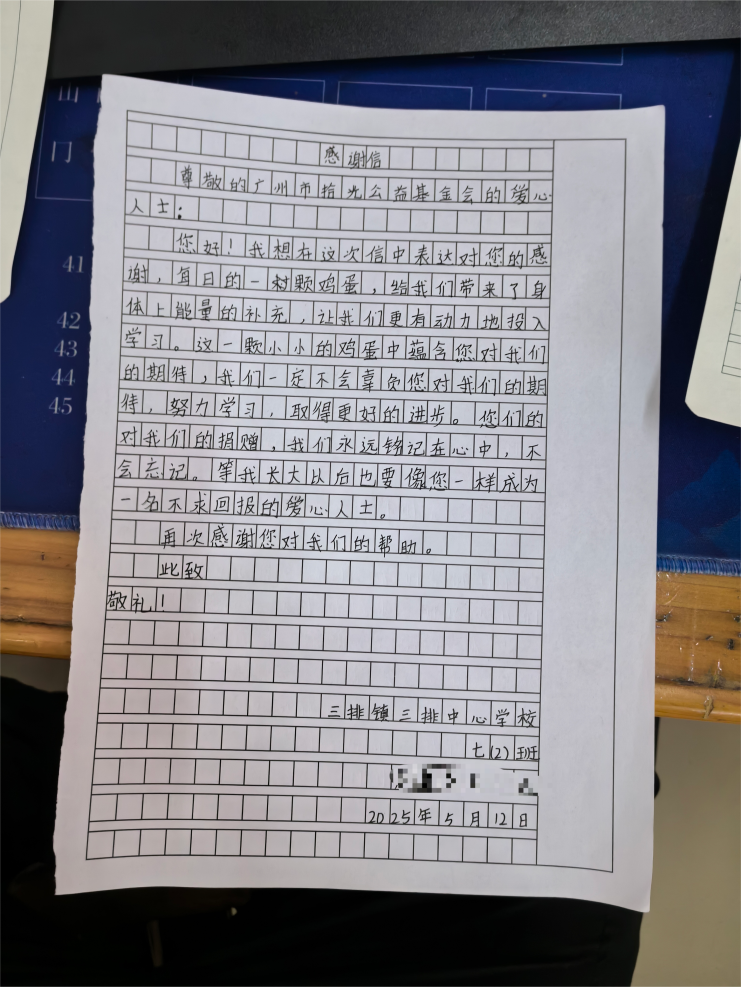 感谢信
尊敬的广州市拾光公益基金会的爱心
人士：
您好！我想在这次信中表达对您的感
谢，每日的一颗鸡蛋，给我们带来了身
体上能量的补充，让我们更有动力地投入
学习。这一颗小小的鸡蛋中蕴含您对我们
的期待，我们一定不会辜负您对我们的期
待，努力学习，取得更好的进步。您们的
对我们的捐赠，我们永远铭记在心中，不
会忘记。等我长大以后也要像您一样成为
一名不求回报的爱心人士。
再次感谢您对我们的帮助。
此致
敬礼！
三排镇三排中心学校
七(2)班
2025年5月12日
门
41
42
43
44
45